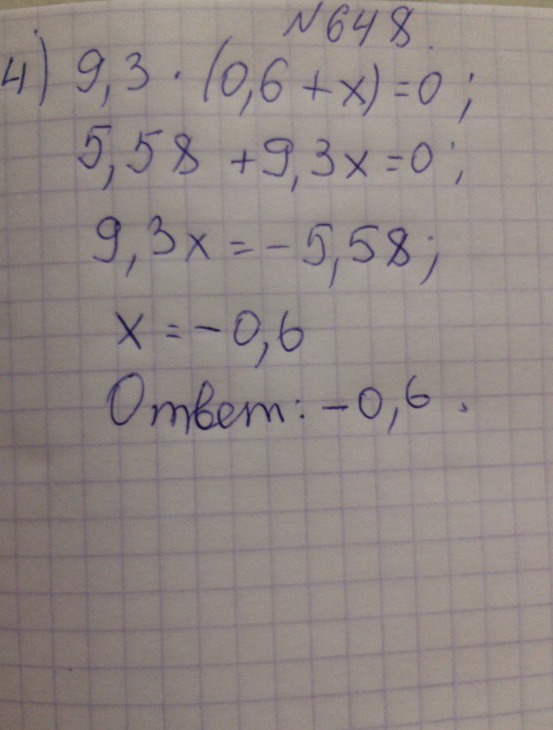 N648.
4) 9,3 · (0,6 + x) = 0;
5,58 + 9,3x = 0;
9,3x = - 5,58;
x = - 0,6
Ответ: - 0,6.